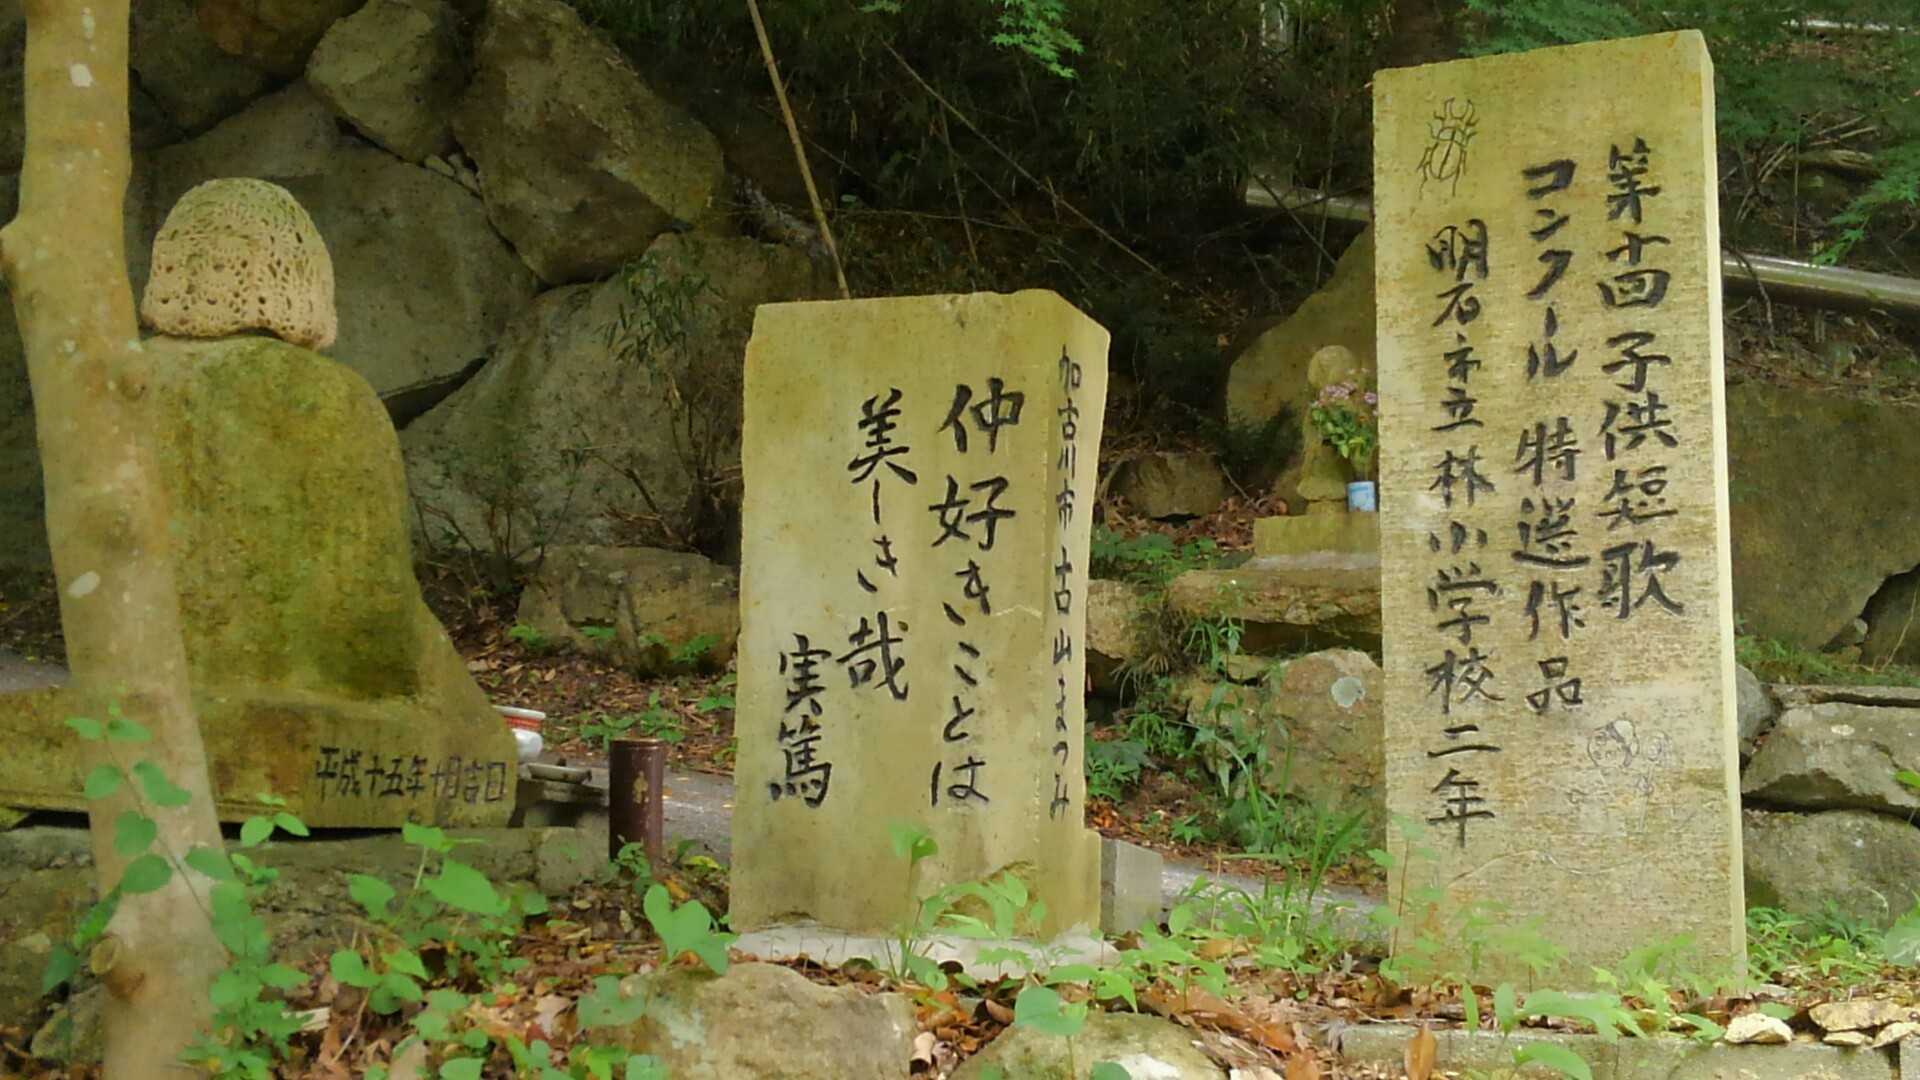 第十四回子供短歌
コンクール 特選作品
明石市立林小学校二年
加古川市 古山まつみ
仲好きことは
美しき哉
実篤
平成十五年十月吉日